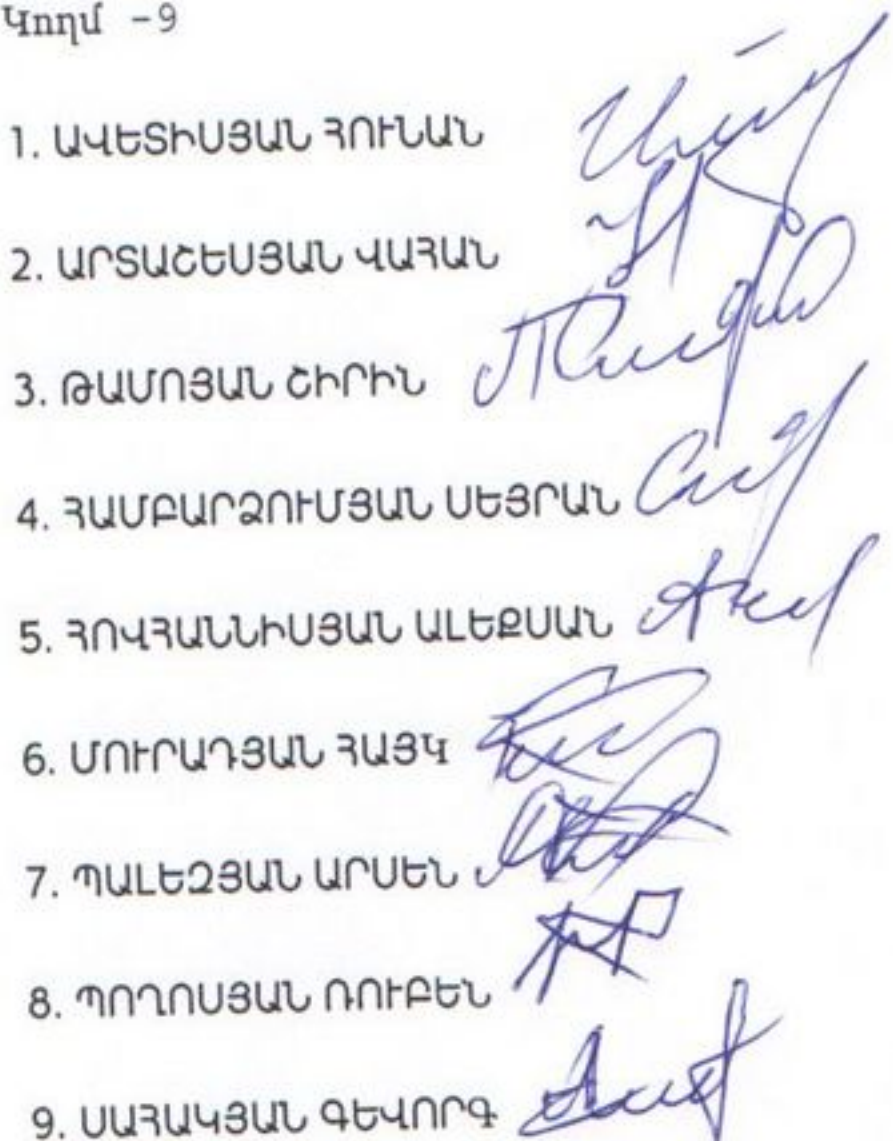 Կողմ -9
1. ԱՎԵՏԻՍՅԱՆ ՀՈՒՆԱՆ
2. ԱՐՏԱՇԵՍՅԱՆ ՎԱՀԱՆ
3. ԹԱՄՈՅԱՆ ՇԻՐԻՆ
4. ՀԱՄԲԱՐՁՈՒՄՅԱՆ ՍԵՅՐԱՆ
5. ՀՈՎՀԱՆՆԻՍՅԱՆ ԱԼԵՔՍԱՆ
6. ՄՈՒՐԱԴՅԱՆ ՀԱՅԿ
7. ՊԱԼԵԶՅԱՆ ԱՐՍԵՆ
8. ՊՈՂՈՍՅԱՆ ՌՈՒԲԵՆ
9. ՍԱՀԱԿՅԱՆ ԳԵՎՈՐԳ